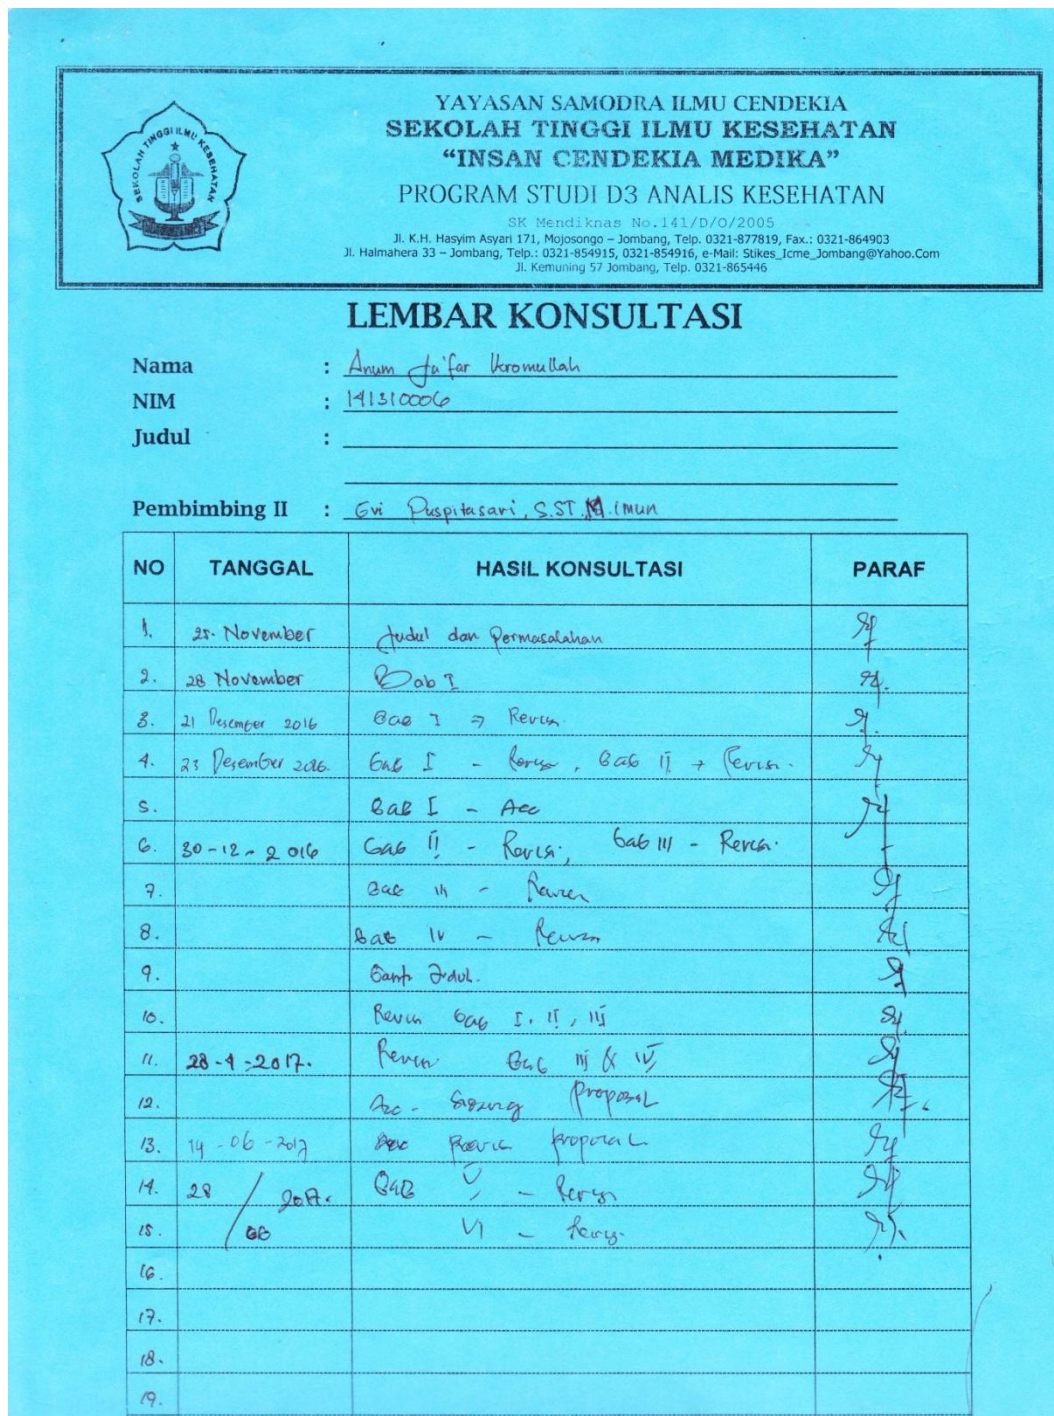 YAYASAN SAMODRA ILMU CENDEKIA
SEKOLAH TINGGI ILMU KESEHATAN
“INSAN CENDEKIA MEDIKA”
PROGRAM STUDI D3 ANALIS KESEHATAN
SK Mendiknas No.141/D/O/2005
Jl. K.H. Hasyim Asyari 171, Mojosongo – Jombang, Telp. 0321-877819, Fax.: 0321-864903
Jl. Halmahera 33 – Jombang, Telp.: 0321-854915, 0321-854916, e-Mail: Stikes_Icme_Jombang@Yahoo.Com
Jl. Kemuning 57 Jombang, Telp. 0321-865446
SEKOLAH TINGGI ILMU KESEHATAN
LEMBAR KONSULTASI
Nama : Anum Ja'far Ikromullah
NIM : 141310006
Judul :
Pembimbing II : Evi Puspitasari, S.ST, M.imun
NO TANGGAL HASIL KONSULTASI PARAF
1. 25. November Judul dan Permasalahan
2. 28 November Bab I
3. 21 Desember 2016 Bab I → Revisi
4. 23 Desember 2016. Bab I - Revisi, Bab II → Revisi.
5. Bab I - Acc
6. 30-12-2016 Bab II - Revisi, bab III - Revisi.
7. Bab III - Revisi
8. Bab IV - Revisi
9. Ganti Judul.
10. Revisi bab I, II, III
11. 28-4-2017. Revisi Bab III & IV
12. Acc - Sidang proposal
13. 14-06-2017 Revisi proposal
14. 28 / 2017. Bab V - Revisi
15. 08 VI - Revisi
16.
17.
18.
19.